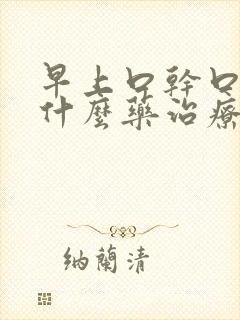 早上口幹口
什麼藥治療
納蘭清